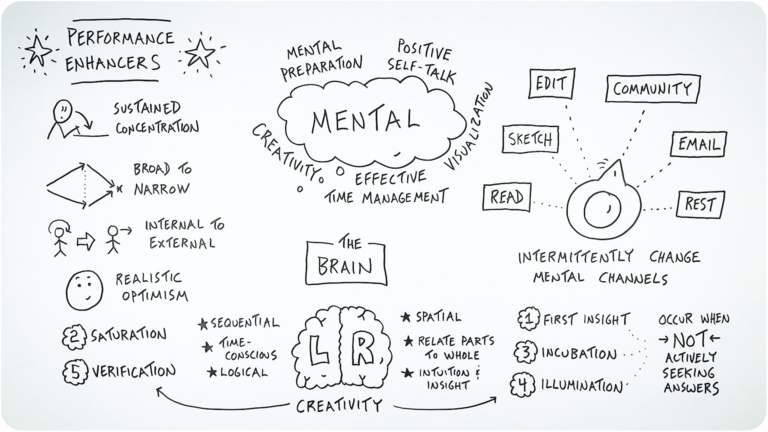 PERFORMANCE
ENHANCERS
SUSTAINED
CONCENTRATION
BROAD TO
NARROW
INTERNAL TO
EXTERNAL
REALISTIC
OPTIMISM
MENTAL
PREPARATION
POSITIVE
SELF-TALK
MENTAL
CREATIVITY
VISUALIZATION
EFFECTIVE
TIME MANAGEMENT
EDIT
COMMUNITY
SKETCH
EMAIL
READ
REST
INTERMITTENTLY CHANGE
MENTAL CHANNELS
THE
BRAIN
2 SATURATION
5 VERIFICATION
★ SEQUENTIAL
★ TIME-
CONSCIOUS
★ LOGICAL
L R
★ SPATIAL
★ RELATE PARTS
TO WHOLE
★ INTUITION &
INSIGHT
CREATIVITY
1 FIRST INSIGHT
3 INCUBATION
4 ILLUMINATION
OCCUR WHEN
→ NOT ←
ACTIVELY
SEEKING
ANSWERS